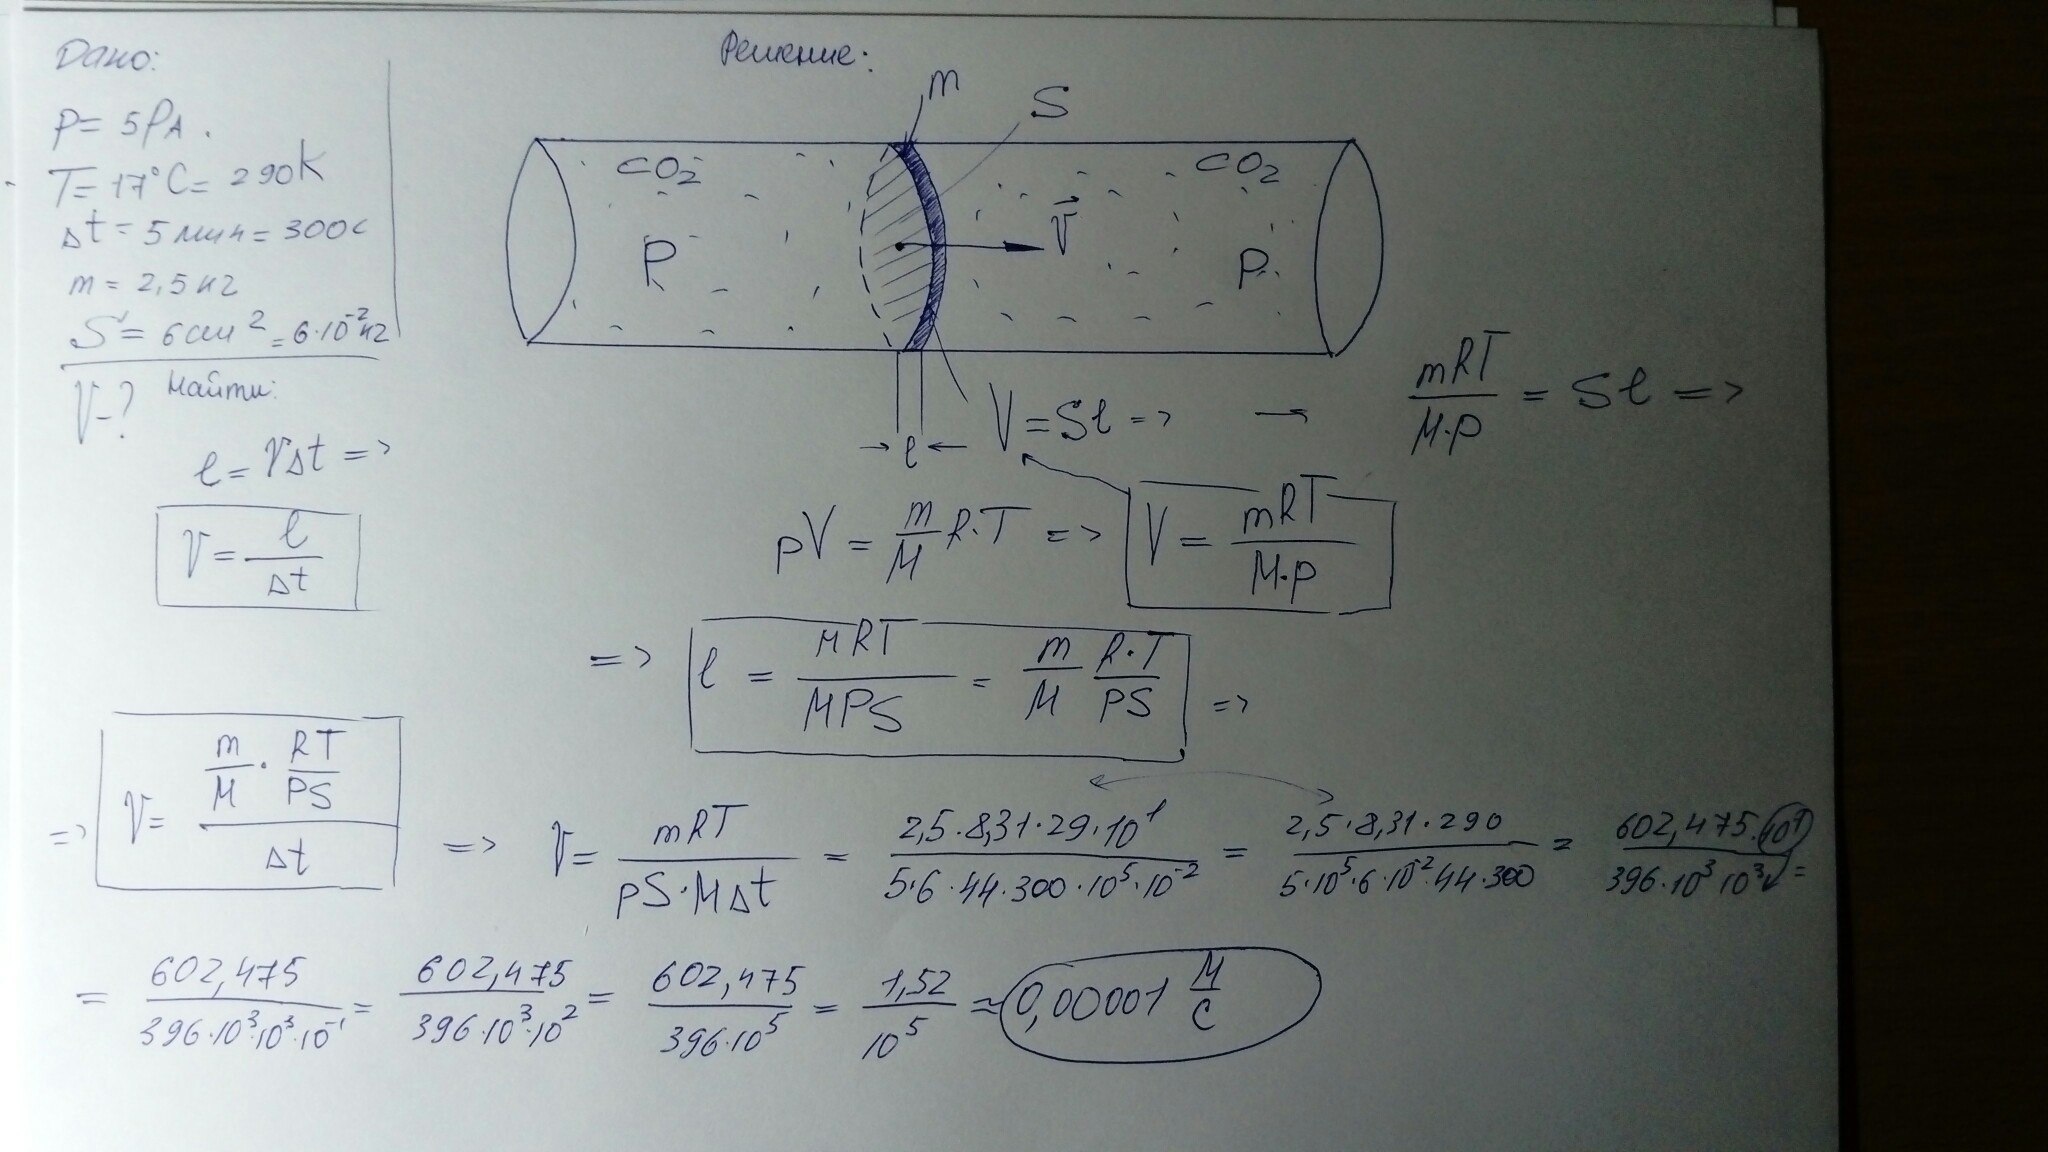 Дано:
p = 5PA.
T = 17°C = 290K
Δt = 5 мин = 300с
m = 2,5 кг
S = 6 см² = 6·10⁻² кг
V-? Найти:
l = VΔt =>
V = l/Δt
Решение:
m
S
CO₂
CO₂
P
V⃗
P
→ l ←
V = Sl => → mRT/M·P = Sl =>
pV = m/M R·T => V = mRT/M·P
=> l = MRT/MPS = m/M R·T/PS =>
=> V = (m/M · RT/PS)/Δt => V = mRT/pS·MΔt = 2,5·8,31·29·10¹/5·6·44·300·10⁵·10⁻² = 2,5·8,31·290/5·10⁵·6·10⁻²·44·300 = 602,475·10¹/396·10³·10³ =
= 602,475/396·10³·10³·10⁻¹ = 602,475/396·10³·10² = 602,475/396·10⁵ = 1,52/10⁵ ≈ 0,00001 М/с